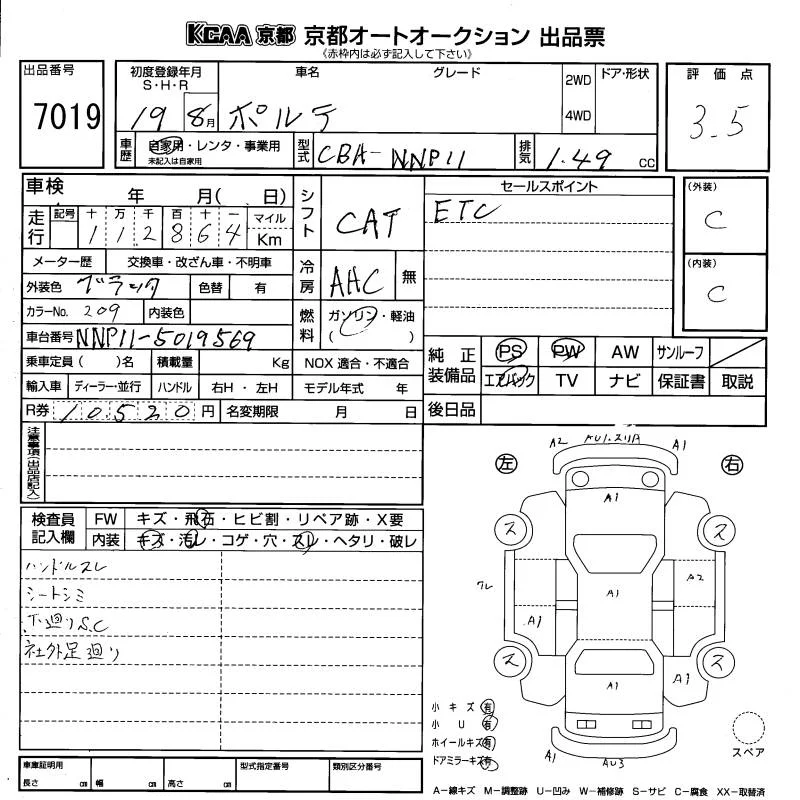 KCAA 京都 京都オートオークション 出品票
《赤枠内は必ず記入して下さい》
出品番号
7019
初度登録年月
S・H・R
19 8月
車名 グレード
ポルテ
2WD
4WD
ドア・形状
評価点
3.5
車歴
自家用・レンタ・事業用
未記入は自家用
型式
CBA-NNP11
排気
1.49 cc
車検 年 月( 日)
走行
記号 十 万 千 百 十 一 マイル
112864 Km
メーター歴 交換車・改ざん車・不明車
外装色 ブラック 色替 有
カラーNo. 209 内装色
車台番号 NNP11-5019569
乗車定員( )名 積載量 Kg NOX 適合・不適合
輸入車 ディーラー・並行 ハンドル 右H・左H モデル年式 年
R券 10,520 円 名変期限 月 日
シフト
CAT
冷房
AAC 無
燃料
ガソリン・軽油
( )
セールスポイント
ETC
(外装)
C
(内装)
C
純正装備品
PS PW AW サンルーフ
エアバック TV ナビ 保証書 取説
後日品
注意事項(出品店記入)
検査員記入欄
FW キズ・飛石・ヒビ割・リペア跡・X要
内装 キズ・汚レ・コゲ・穴・スレ・ヘタリ・破レ
ハンドルスレ
シートシミ
下廻りS.C
社外足廻り
左
右
A2 AU1.スリA A1
A1
ス ス
クレ A1 A2
A1
ス ス
A1 A1
A1 AU3
小キズ 有
小U 有
ホイールキズ 有
ドアミラーキズ 有
スペア
車庫証明用
長さ cm 幅 cm 高さ cm
型式指定番号
類別区分番号
A-線キズ M-調整跡 U-凹み W-補修跡 S-サビ C-腐食 XX-取替済